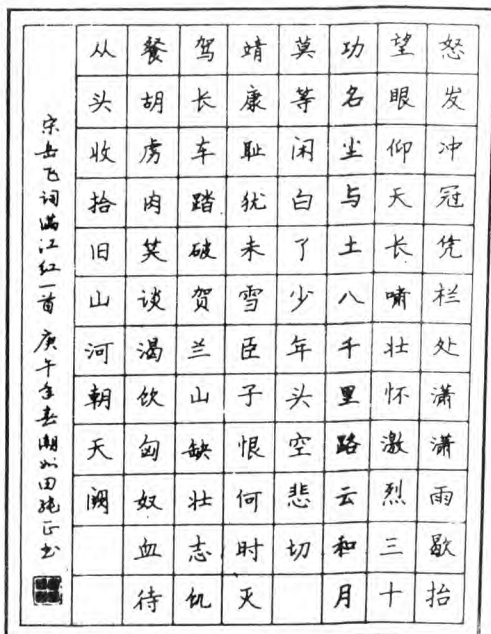 怒发冲冠凭栏处潇潇雨歇抬
望眼仰天长啸壮怀激烈三十
功名尘与土八千里路云和月
莫等闲白了少年头空悲切
靖康耻犹未雪臣子恨何时灭
驾长车踏破贺兰山缺壮志饥
餐胡虏肉笑谈渴饮匈奴血待
从头收拾旧山河朝天阙
宋岳飞词满江红一首 庚午年春潮州田正书